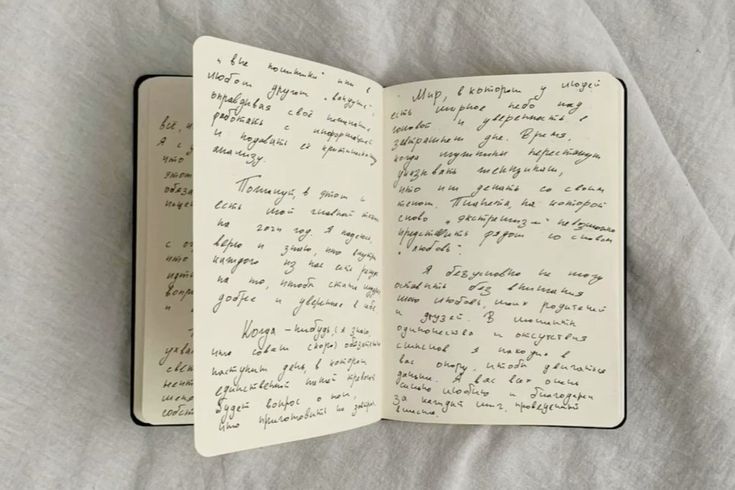 все, ч
Я с
что
этом
обяза
с о
что
идти
вопро
и
ухва
све
мент
собст
"вне политики" или в
любом другом "вакууме",
оправдывая своё нежелание
работать с информацией
и подавать её критическому
анализу.
Пожалуй, в этом и
есть мой главный
на 2024 год. Я надеюсь,
верю и знаю, что внутри
каждого из нас есть ресурс
на то, чтобы стать
добрее и увереннее в себе.
Когда-нибудь (я знаю,
что совсем скоро) обязательно
наступит день, в котором
единственной нашей тревогой
будет вопрос о том,
что приготовить на завтрак.
Мир, в котором у людей
есть мирное небо над
головой и уверенность в
завтрашнем дне. Время,
когда мужчины перестанут
указывать женщинам,
что им делать со своим
телом. Планета, на которой
слово "экстремизм" невозможно
представить рядом со словом
"любовь".
Я безусловно не могу
оставить без внимания
мою любовь, моих родителей
и друзей. В моменты
одиночества и отсутствия
смыслов я находила в
вас опору, чтобы двигаться
дальше. Я вас всех очень
сильно люблю и благодарю
за каждый миг, проведенный
вместе.